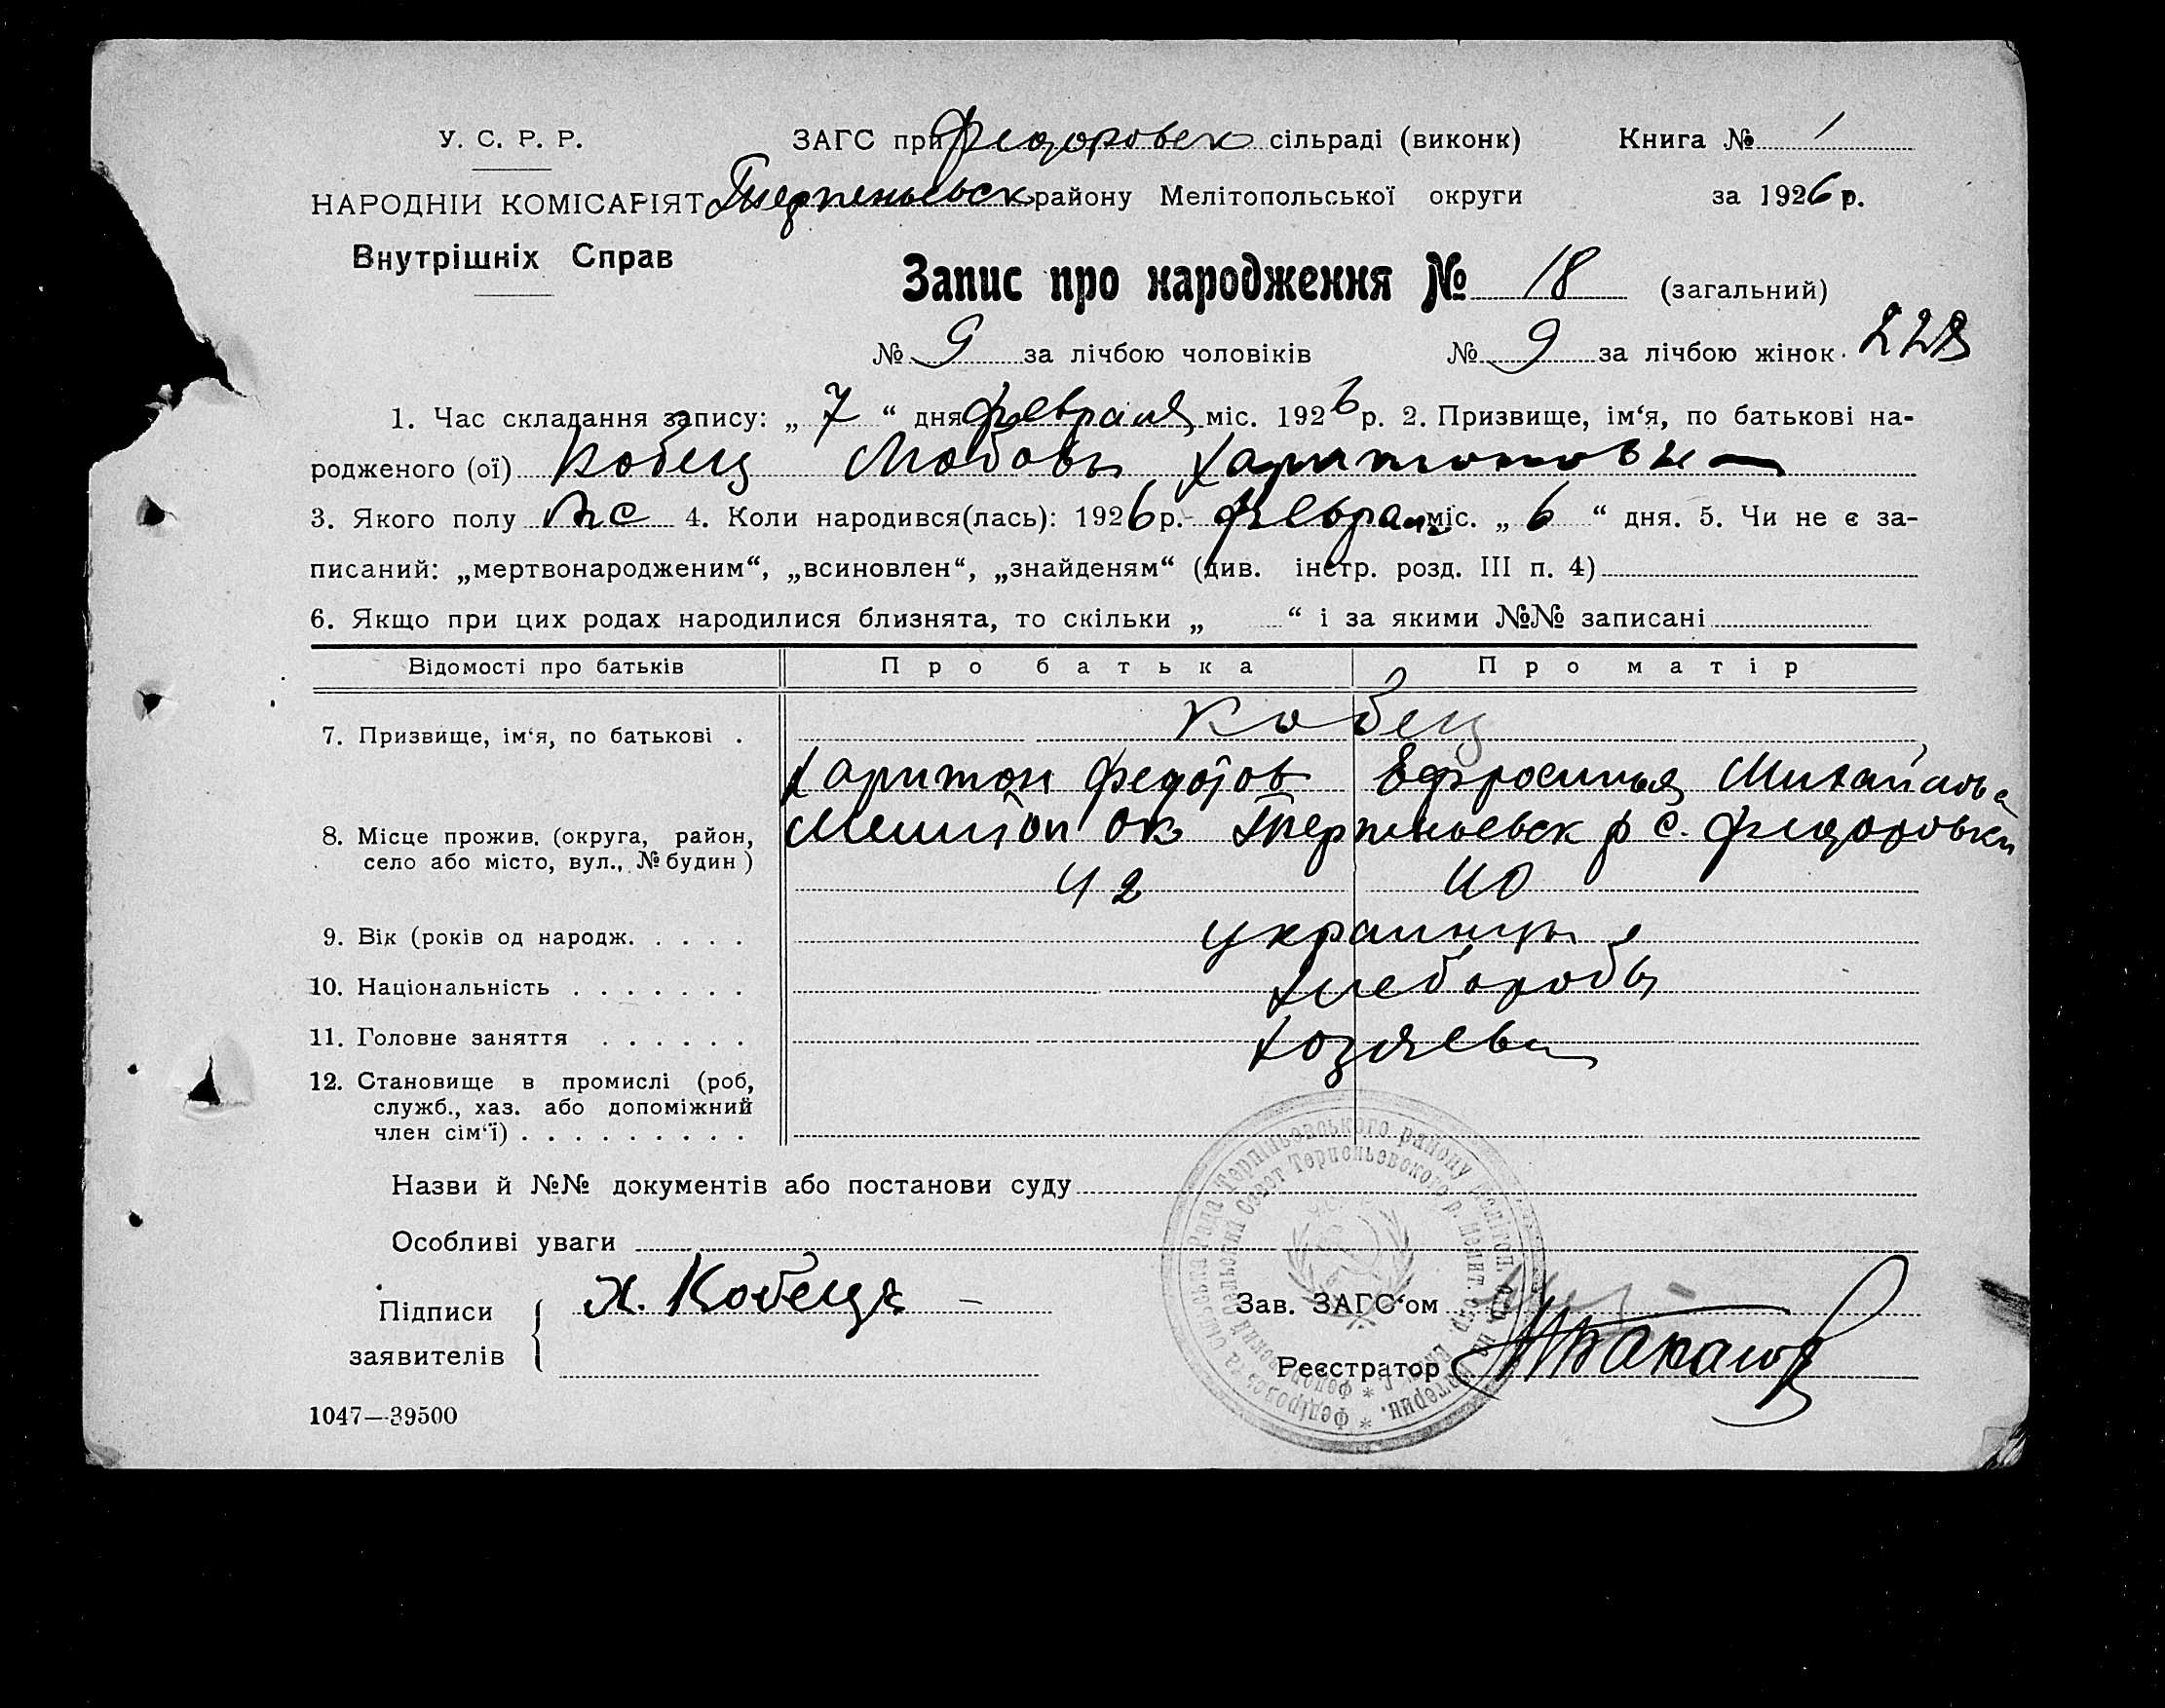 У. С. Р. Р. ЗАГС при Федоровск сільраді (виконк) Книга № 1
НАРОДНІЙ КОМІСАРІЯТ Терпеньевск району Мелітопольської округи за 1926 р.
Внутрішніх Справ
Запис про народження № 18 (загальний)
№ 9 за лічбою чоловіків № 9 за лічбою жінок
1. Час складання запису: „ 7 “ дня февраля міс. 1926 р. 2. Призвище, ім‘я, по батькові на-
родженого (ої) Кобец Любовь Харитоновы
3. Якого полу жс 4. Коли народився(лась): 1926 р. феврал міс. „ 6 “ дня. 5. Чи не є за-
писаний: „мертвонародженим“, „всиновлен“, „знайденям“ (див. інстр. розд. III п. 4)
6. Якщо при цих родах народилися близнята, то скільки „ “ і за якими №№ записані
Відомості про батьків Про батька Про матір
7. Призвище, ім‘я, по батькові . Кобец
Харитон Федотов Ефросинья Михайлова
8. Місце прожив. (округа, район, Мелитоп ок Терпеньевск р с. Федоровки
село або місто, вул., № будин )
42 40
9. Вік (років од народж. . . . . украинцы
10. Національність . . . . . . . хлеборобы
11. Головне заняття . . . . . . хозяева
12. Становище в промислі (роб,
служб., хаз. або допоміжний
член сім‘ї) . . . . . . . . .
Назви й №№ документів або постанови суду
Особливі уваги
Підписи Х. Кобець Зав. ЗАГС‘ом
заявителів Реєстратор
1047—39500